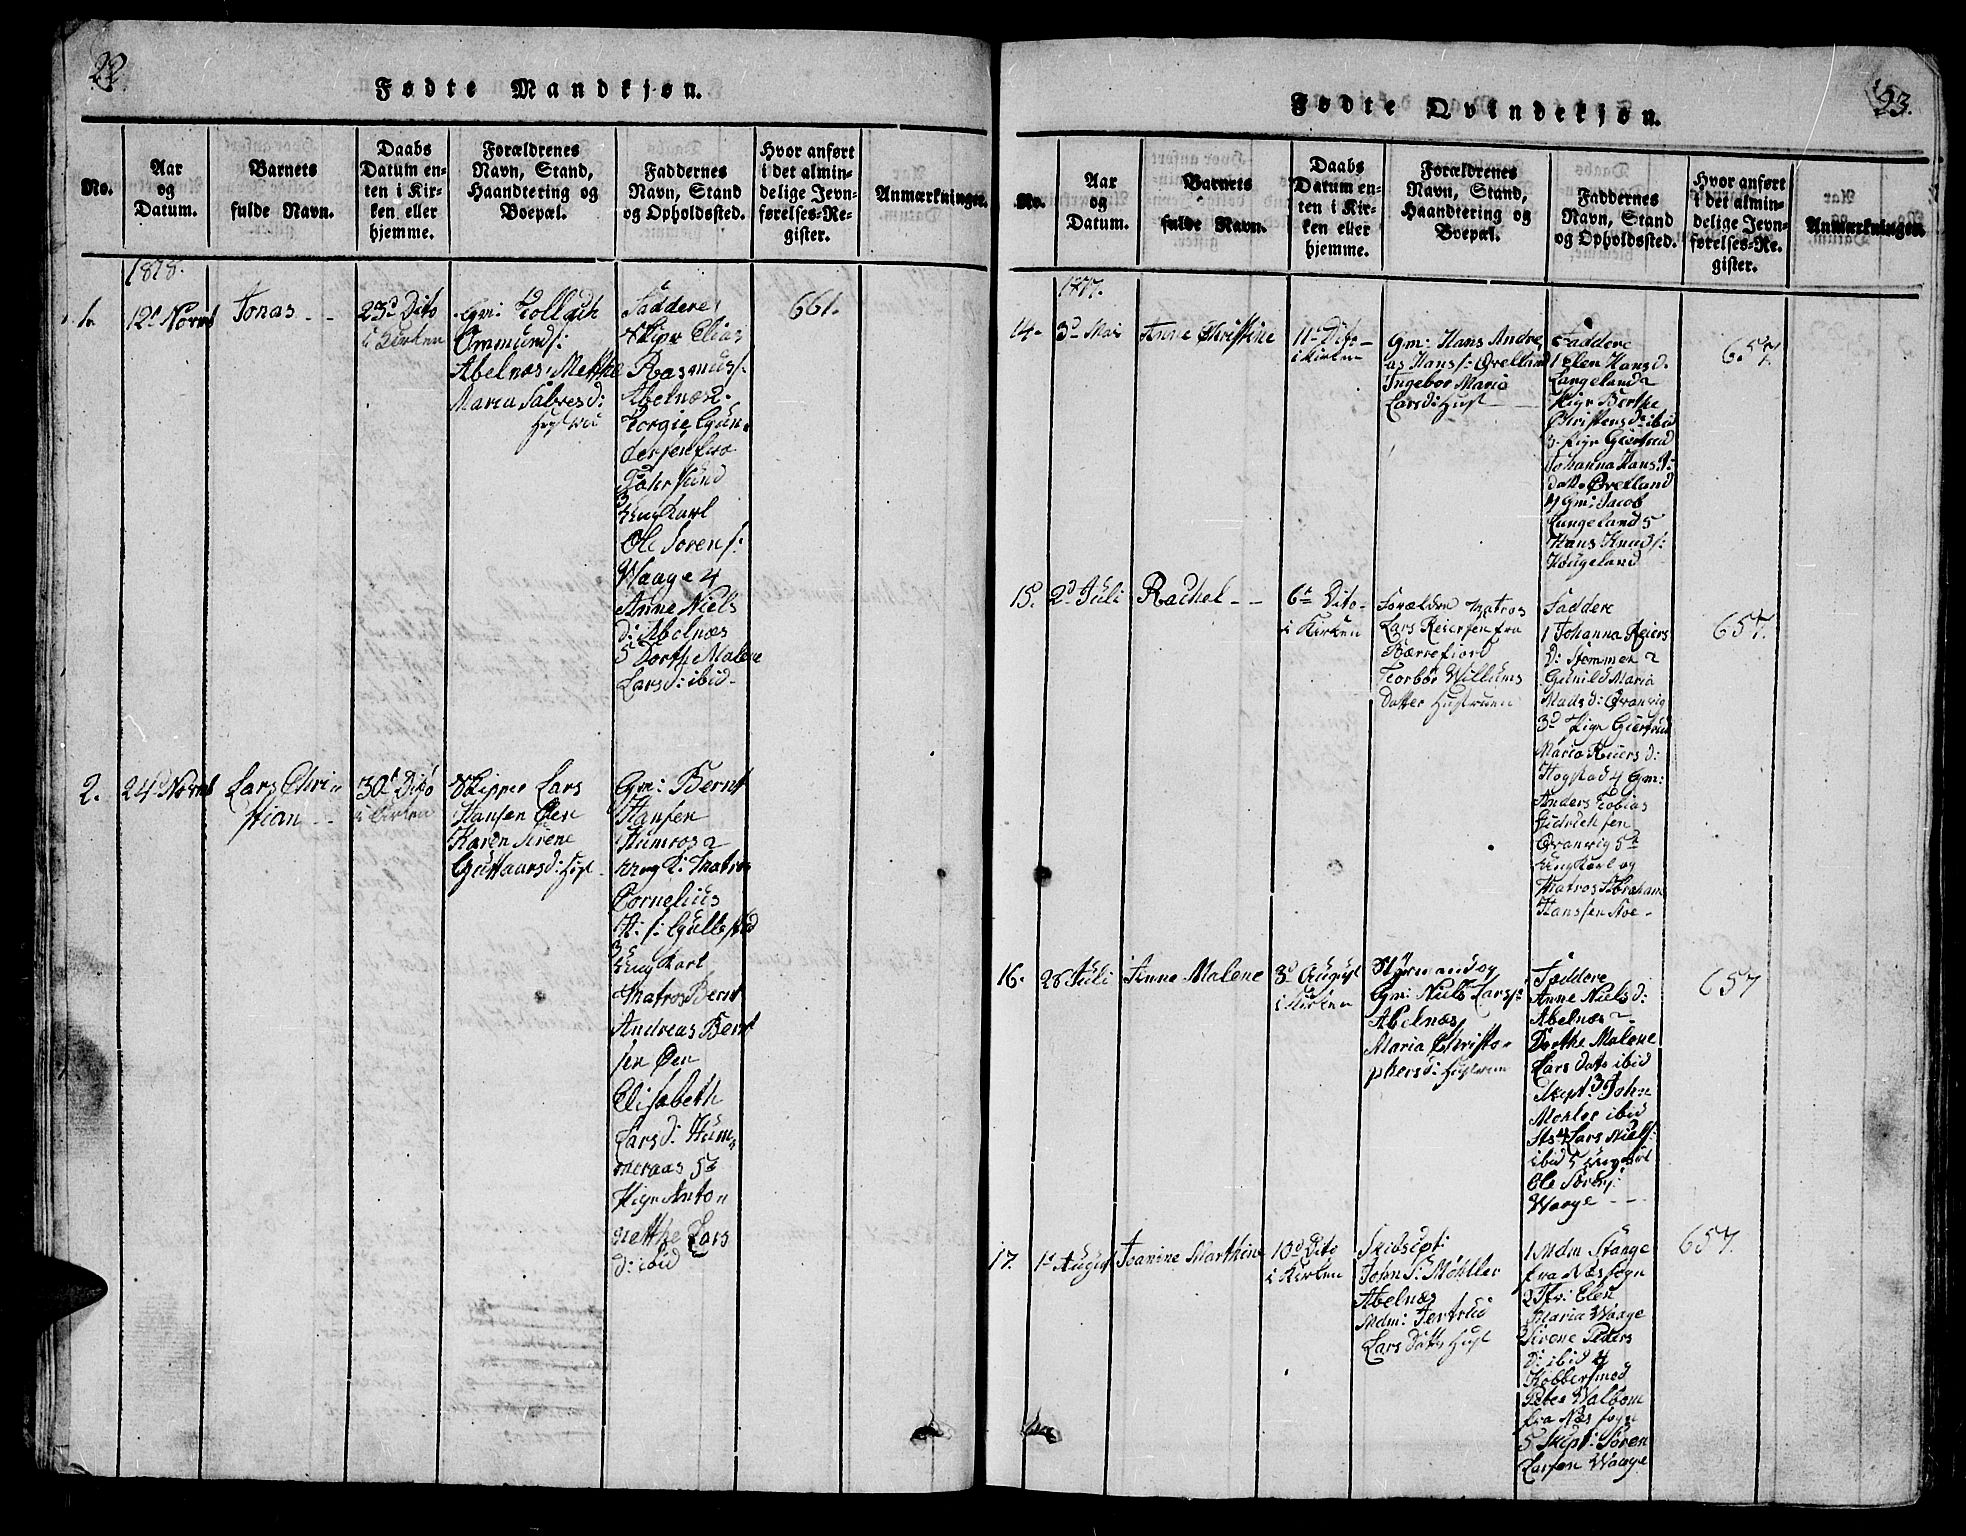 22
Fødte Mandkjøn.
No.
Aar
og
Datum.
Barnets
fulde Navn.
Daabs
Datum en-
ten i Kir-
ken eller
hjemme.
Forældrenes
Navn, Stand,
Haandtering og
Boepæl.
Faddernes
Navn, Stand
og Opholdssted.
Hvor anført
i det almin-
delige Jevn-
førelses-Re-
gister.
Anmærkninger.
1818.
1.
12t Novr
Jonas
23d Dito
i Kirken
Gm: Tollach
Ommunds:
Abelnæs, Methe
Maria Salvesd:
Faddere
Skipr Elias
Rasmuss:
Abelnæs 2.
Torgie Gun-
dersen fra
Fahrsund
3
Ung Karl
Ole Sorens:
Waage 4
Anne Niels
d: Abelnæs
5 Dorthe Malene
Larsd: ibid
661.
2.
24d Novr
Lars Chri-
stian
30d Dito
i Kirken
Skipper Lars
Hansen Øen
Karen Sirene
Guttaarsd:
Gm: Bernt
Hansen
Humros 2
ung k: Matros
Cornelius
H: s: Gullestad
3
Ung Karl
Matros Bernt
Andreas Bernt
sen Øen
Elisabeth
Larsd: Hum-
meraas 5t
Pige Anto
nethe Lars
d: ibid
23.
Fødte Qvindekjøn.
No.
Aar
og
Datum.
Barnets
fulde Navn.
Daabs
Datum en-
ten i Kir-
ken eller
hjemme.
Forældrenes
Navn, Stand,
Haandtering og
Boepæl.
Faddernes
Navn, Stand
og Opholdssted.
Hvor anført
i det almin-
delige Jevn-
førelses-Re-
gister.
Anmærkninger.
1817.
14.
3d Mai
Anne Christine
11t Dito
i Kirken
Gm: Hans Andre
as Hans s: Ørelland
Ingebor Maria
Larsd: Hust
Faddere
1 Elen Hansd.
Langeland 2
Pige Berthe
Christensd: ibid
3. Pige Giertrud
Johanna Hans
datt. Ørelland
4 Gm: Jacob
Langeland 5
Hans Knuds:
Hougeland
657.
15.
2d Juli
Rachel
6te Dito
i Kirken
Forældre Matros
Lars Reiersen fra
Bærrefiord
Torbor Willums
Datter Hustruen
Faddere
1 Johanna Reiers
D: Stommen 2
Gunild Maria
Madsd: Qvanvig
3d Pige Giertrud
Maria Reiersd:
Hogstad 4 Gm:
Anders Tobias
Fridrichsen
Qvanvig 5t
Ung Karl og
Matros Abraham
Hanssen Aoe
657.
16.
28 Juli
Anne Malene
3d August
i Kirken
Styrmand og
Gm: Niels Larss:
Abelnæs
Maria Christo-
phersd: Hustruen
Faddere
Anne Nielsd:
Abelnæs 2
Dorthe Malene
Lars Datt ibid
Skept: 3 John
Mohler ibid
4 Lars Niels:
ibid 5 Ung Karl
Ole Sorens:
Waage
657
17.
1t August
Joanine Marthine
10d Dito
i Kirken
Skibscpt:
John S: Møhller
Abelnæs
Mdm: Jertrud
Lars Datter Hust
1 Mdm Stange
fra Næs sogn
2 Jfr: Elen
Maria Waage
3 Sirene Peders
D: ibid 4
Kobbersmed
Peter Walbom
fra Næs sogn
5 Skipt: Soren
Larsen Waage
657.